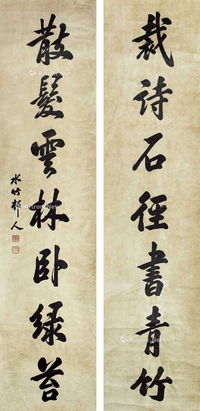 裁诗石徑書青竹
散髮雲林卧绿苔
水竹邨人